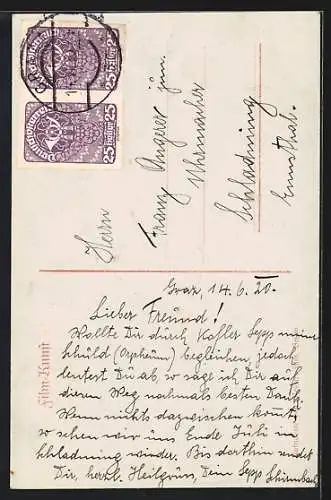 Herrn
Franz Angerer jun.
Uhrmacher
Schladming
Ennsthal.
Graz, 14.6.20.
Lieber Freund!
Wollte Dir durch Kofler Sepp meine
Schuld (Orpheum) begleichen, jedoch
Du ab, so sage ich Dir auf
diesen Weg nochmals besten Dank.
Wenn nichts dazwischen kommt,
so sehen wir uns Ende Juli in
Schladming wieder. Bis dorthin sendet
Dir, herzl. Heilgrüss, Dein Sepp
Film-Kunst
25 25
25 25